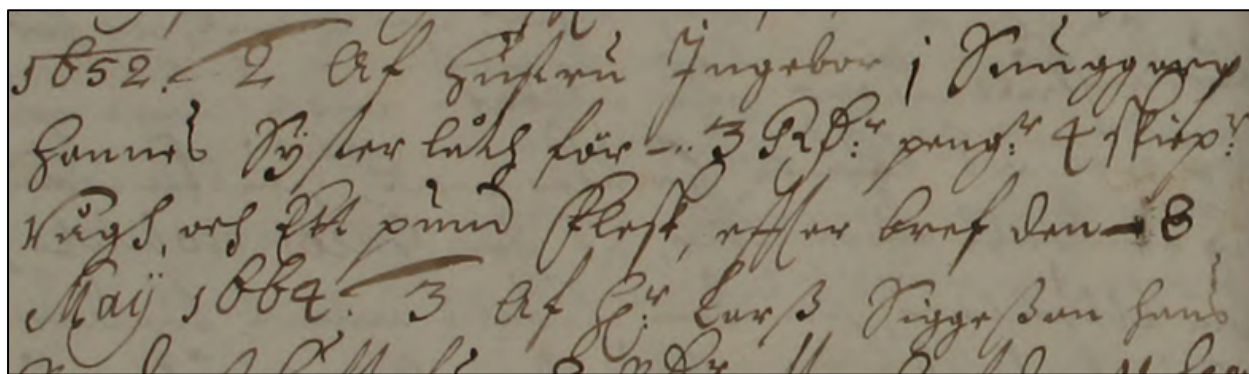 1652. 2 Af Hustru Ingebor j
Hannes Syster låth för 3 Rdr: peng:r 4 skiep:r
Rågh, och Ett pund Flesk, effter bref den 8
Maÿ 1664. 3 Af H:r Larß Siggeßon hans